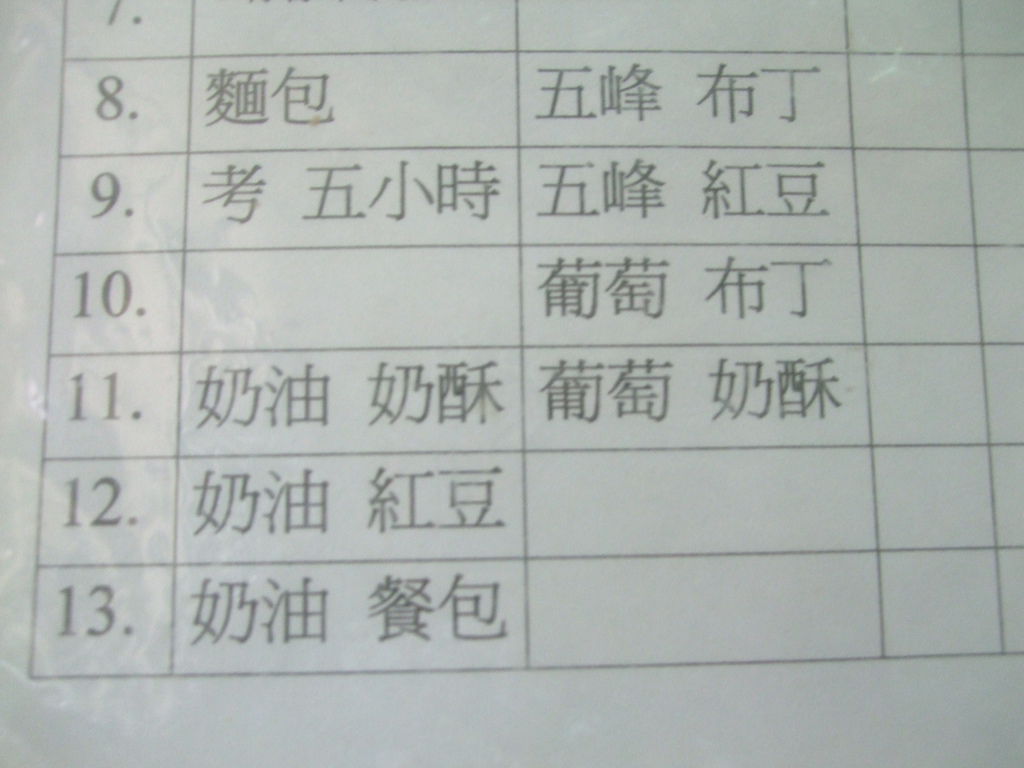 7.
8. 麵包 五峰 布丁
9. 考 五小時 五峰 紅豆
10. 葡萄 布丁
11. 奶油 奶酥 葡萄 奶酥
12. 奶油 紅豆
13. 奶油 餐包